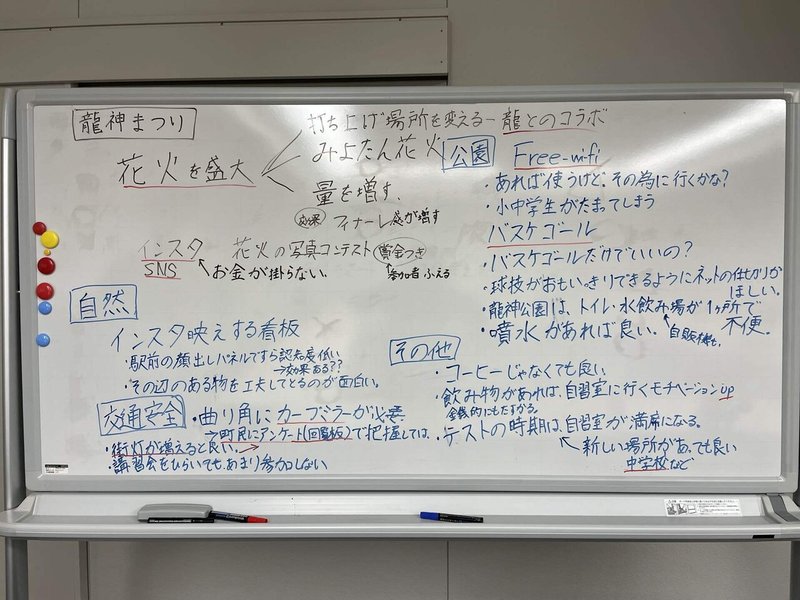 龍神まつり
花火を盛大
打ち上げ場所を変える－龍とのコラボ
みよたん花火
量を増す、
効果 フィナーレ感が増す
インスタ 花火の写真コンテスト 賞金つき
SNS お金が掛らない。 参加者ふえる
自然
インスタ映えする看板
・駅前の顔出しパネルですら認知度低い
→効果ある??
・その辺のある物を工夫してとるのが面白い。
交通安全
・曲り角にカーブミラーが必要
→町民にアンケート(回覧板)で把握しては。
・街灯が増えると良い。→
・講習会をひらいても、あまり参加しない
公園 Free-wifi
・あれば使うけど、その為に行くかな?
・小中学生がたまってしまう
バスケゴール
・バスケゴールだけでいいの?
・球技がおもいっきりできるようにネットの仕切りが
ほしい。
・龍神公園は、トイレ・水飲み場が1ヶ所で
不便。
自販機も、
・噴水があれば良い。
その他
・コーヒーじゃなくても良い
・飲み物があれば、自習室に行くモチベーションup
金銭的にもたすかる。
・テストの時期は、自習室が満席になる。
新しい場所があっても良い
中学校など